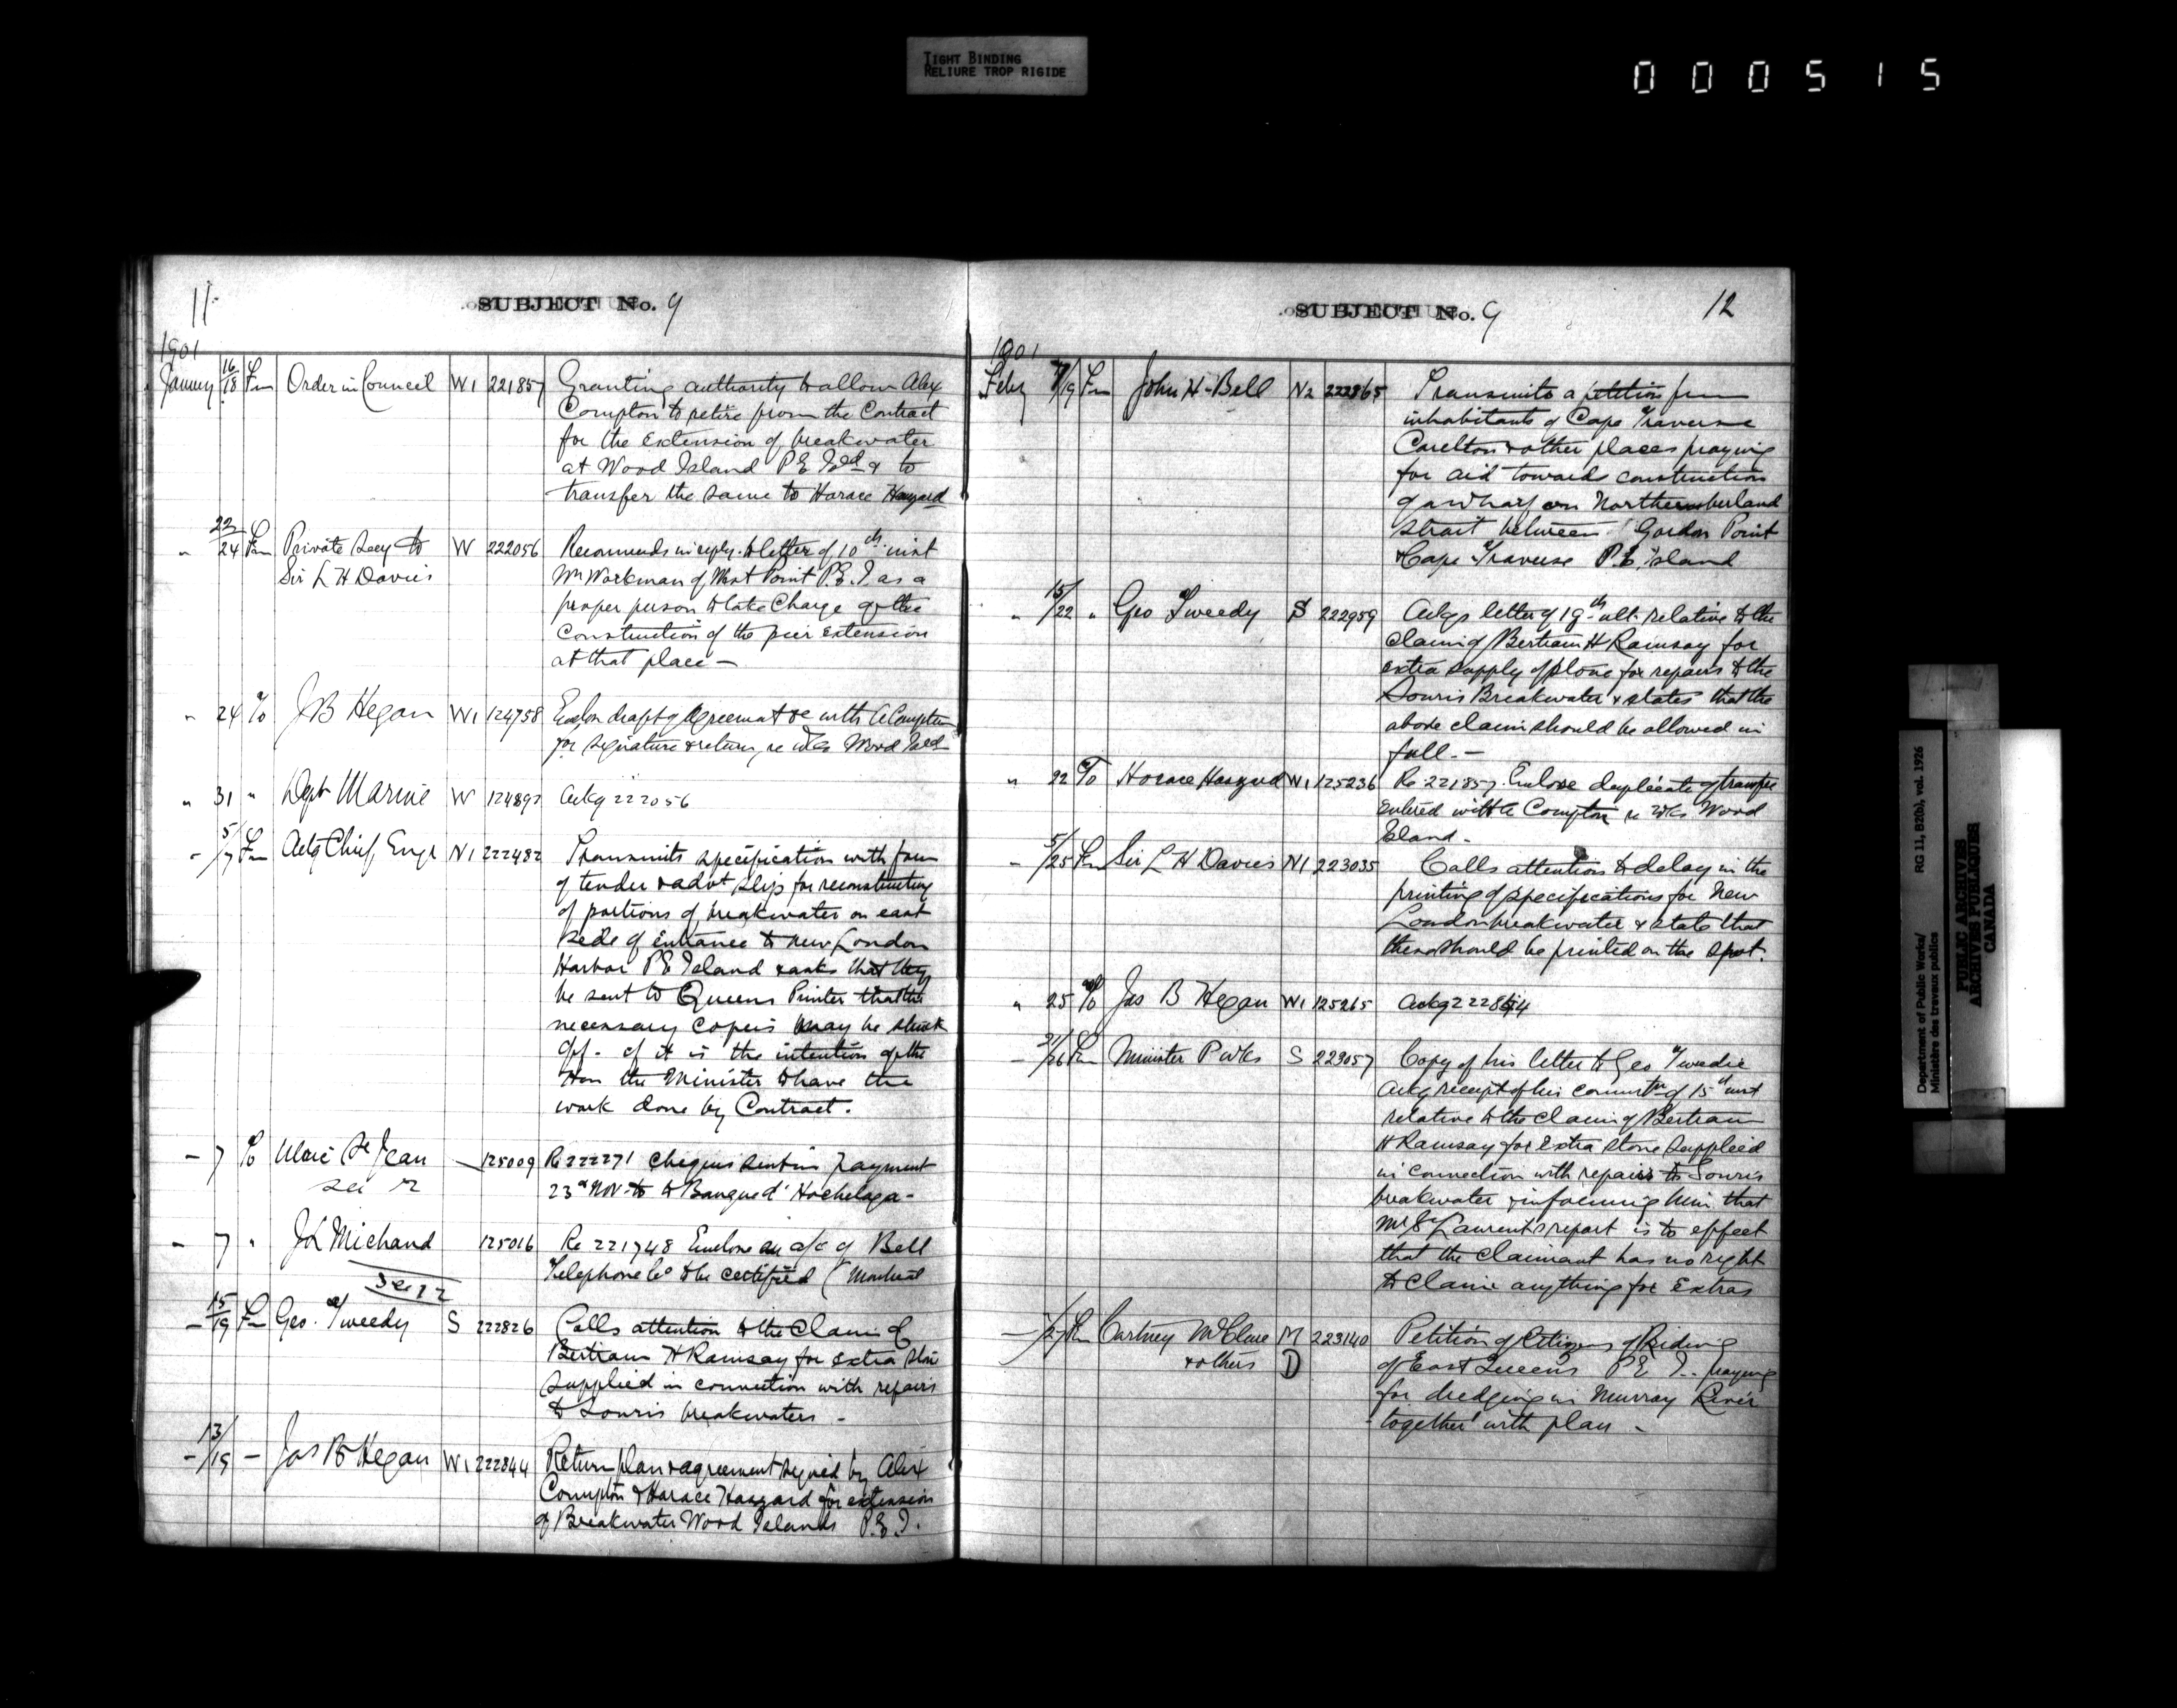 TIGHT BINDING
RELIURE TROP RIGIDE
000515
11
SUBJECT No. 9
1901
January 16/18 Fm Order in Council W1 221857 Granting authority to allow Alex
Compton to retire from the Contract
for the extension of breakwater
at Wood Island P E Isld & to
transfer the same to Horace Haszard
" 22/24 Fm Private Secy to W 222056 Recommends in reply to letter of 10th inst
Sir L H Davies
Mr Workman of West Point P.E.I. as a
proper person to take charge of the
construction of the pier extension
at that place —
" 24 To J B Hegan W1 124758 Enclose draft of Agreement &c with A Compton
for signature & return, re Wks Wood Isld
" 31 " Dept Marine W 124892 Ackg 222056
- 5/7 Fm Actg Chief Engr N1 222482 Transmits specification with form
of tender & advt slip for reconstructing
of portions of breakwater on east
side of entrance to New London
Harbor P E Island & asks that they
be sent to Queens Printer that the
necessary copies may be struck
off - if it is the intention of the
Hon the Minister to have the
work done by Contract.
- 7 To Ulric St Jean — 125009 Re 222271 cheques sent in payment
23rd Nov to Banque d'Hochelaga -
- 7 " J L Michaud 125016 Re 221748 Enclose an a/c of Bell
Telephone Co to be certified (Montreal
- 15/19 Fm Geo. Tweedy S 222826 Calls attention to the claim of
Bertram H Ramsay for extra stone
supplied in connection with repairs
to Souris breakwaters -
- 13/19 - Jas B Hegan W1 222844 Return plan & agreement signed by Alex
Compton & Horace Haszard for extension
of Breakwater Wood Islands P.E.I.
SUBJECT No. 9
12
1901
Feby 7/19 Fm John H Bell N2 222865 Transmits a petition from
inhabitants of Cape Traverse
Carelton & other places praying
for aid towards construction
of a wharf on Northumberland
Strait between Gordon Point
& Cape Traverse P.E. Island
" 15/22 " Geo Tweedy S 222959 Ackgs letter of 19th ult. relative to the
claim of Bertram H Ramsay for
extra supply of stone for repairs to the
Souris Breakwater & states that the
above claim should be allowed in
full. —
" 22 To Horace Haszard W1 125236 Re 221857. Enclose duplicate of transfer
entered with A Compton re Wks Wood
Island -
- 5/25 Fm Sir L H Davies N1 223035 Calls attention to delay in the
printing of specifications for New
London breakwater & states that
these should be printed on the spot.
" 25 To Jas B Hegan W1 125265 Ackg 222844
- 21/26 Fm Minister P Wks S 223057 Copy of his letter to Geo Tweedie
ackg receipt of his commtn of 15th inst
relative to the claim of Bertram
H Ramsay for extra stone supplied
in connection with repairs to Souris
breakwater & informing him that
Mr St Laurent's report is to effect
that the claimant has no right
to claim anything for extras
/27 Fm Cartney McClure M 223140 Petition of Citizens of Riding
& others D
of East Queens P E I.. praying
for dredging in Murray River
together with plan -
Department of Public Works/
Ministère des travaux publics
RG 11, B2(b), vol. 1926
PUBLIC ARCHIVES
ARCHIVES PUBLIQUES
CANADA